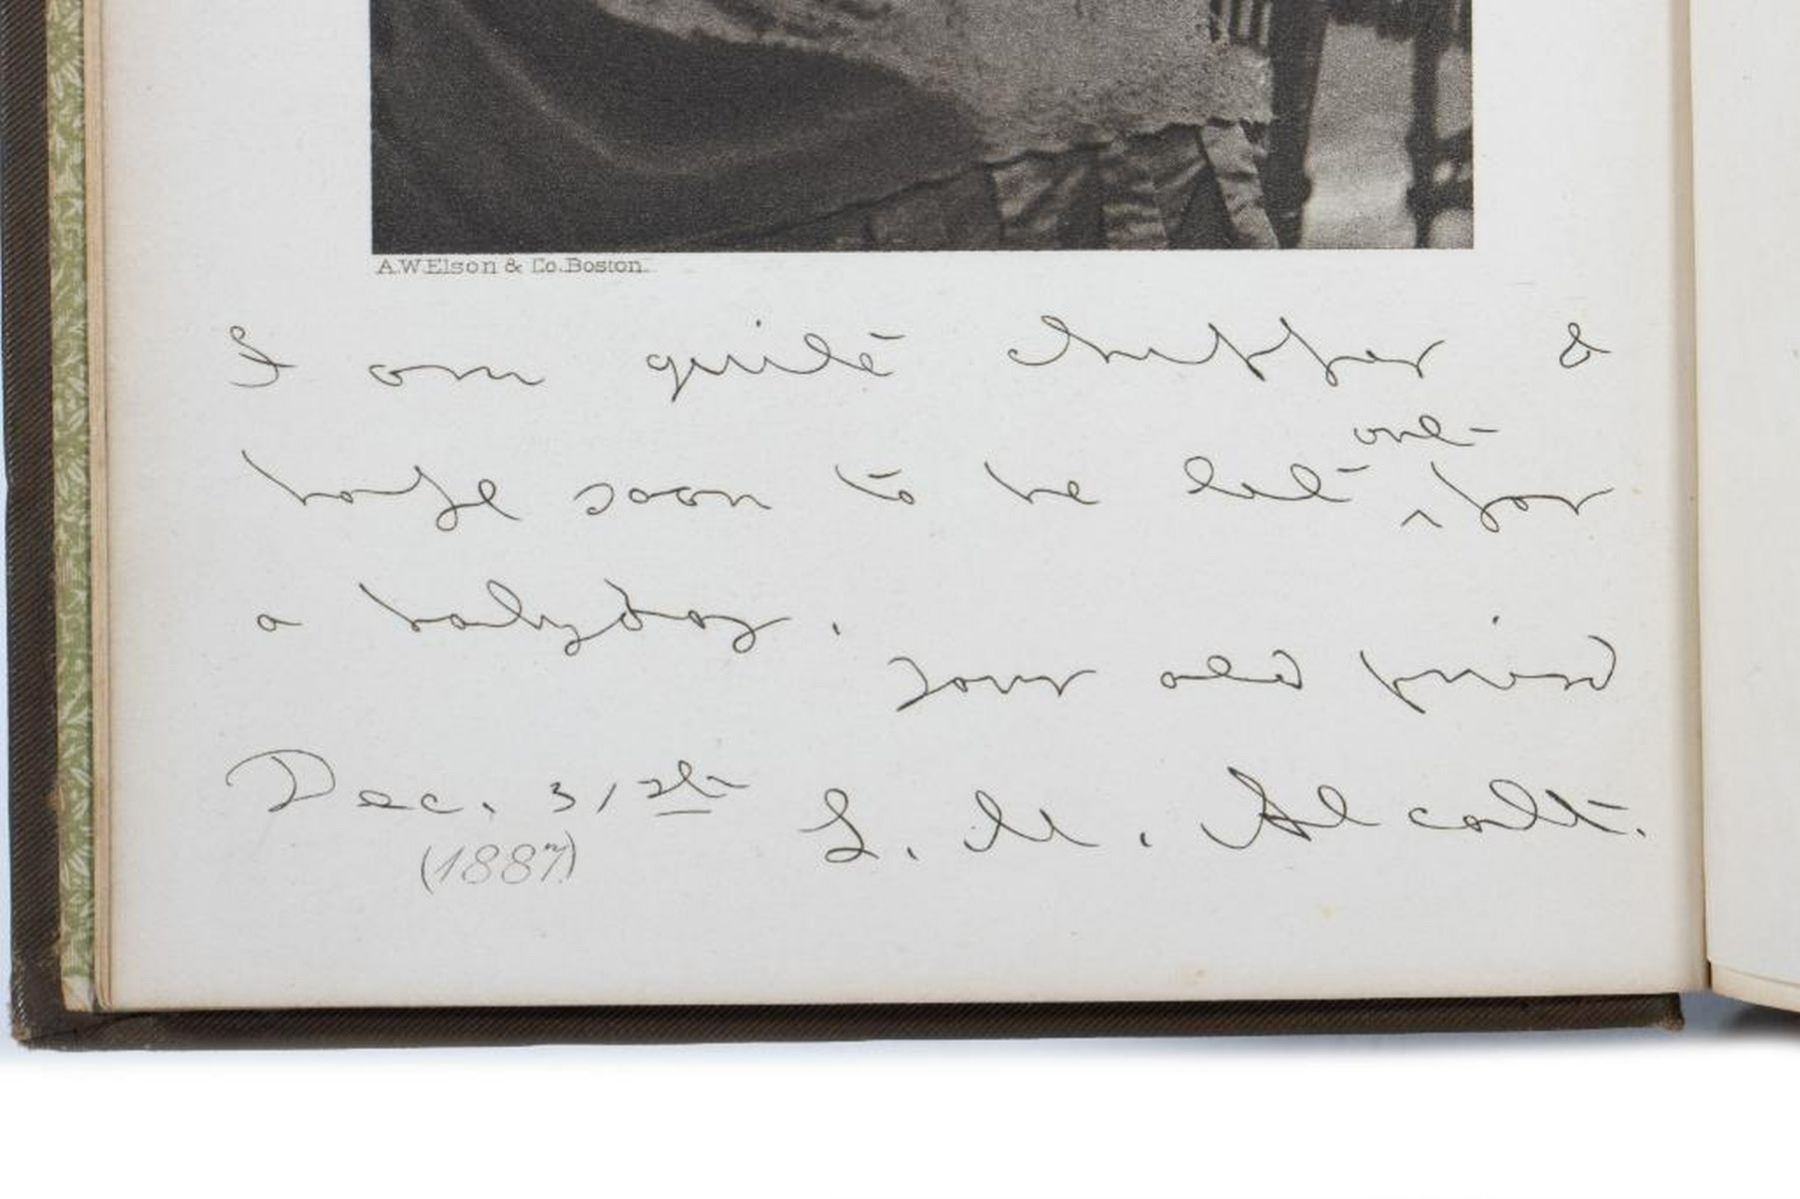 A.W.Elson & Co. Boston.
I am quite chipper &
hope soon to be let out ^ for
a holyday.
Your old friend
Dec. 31st
L. M. Alcott.
(1887)